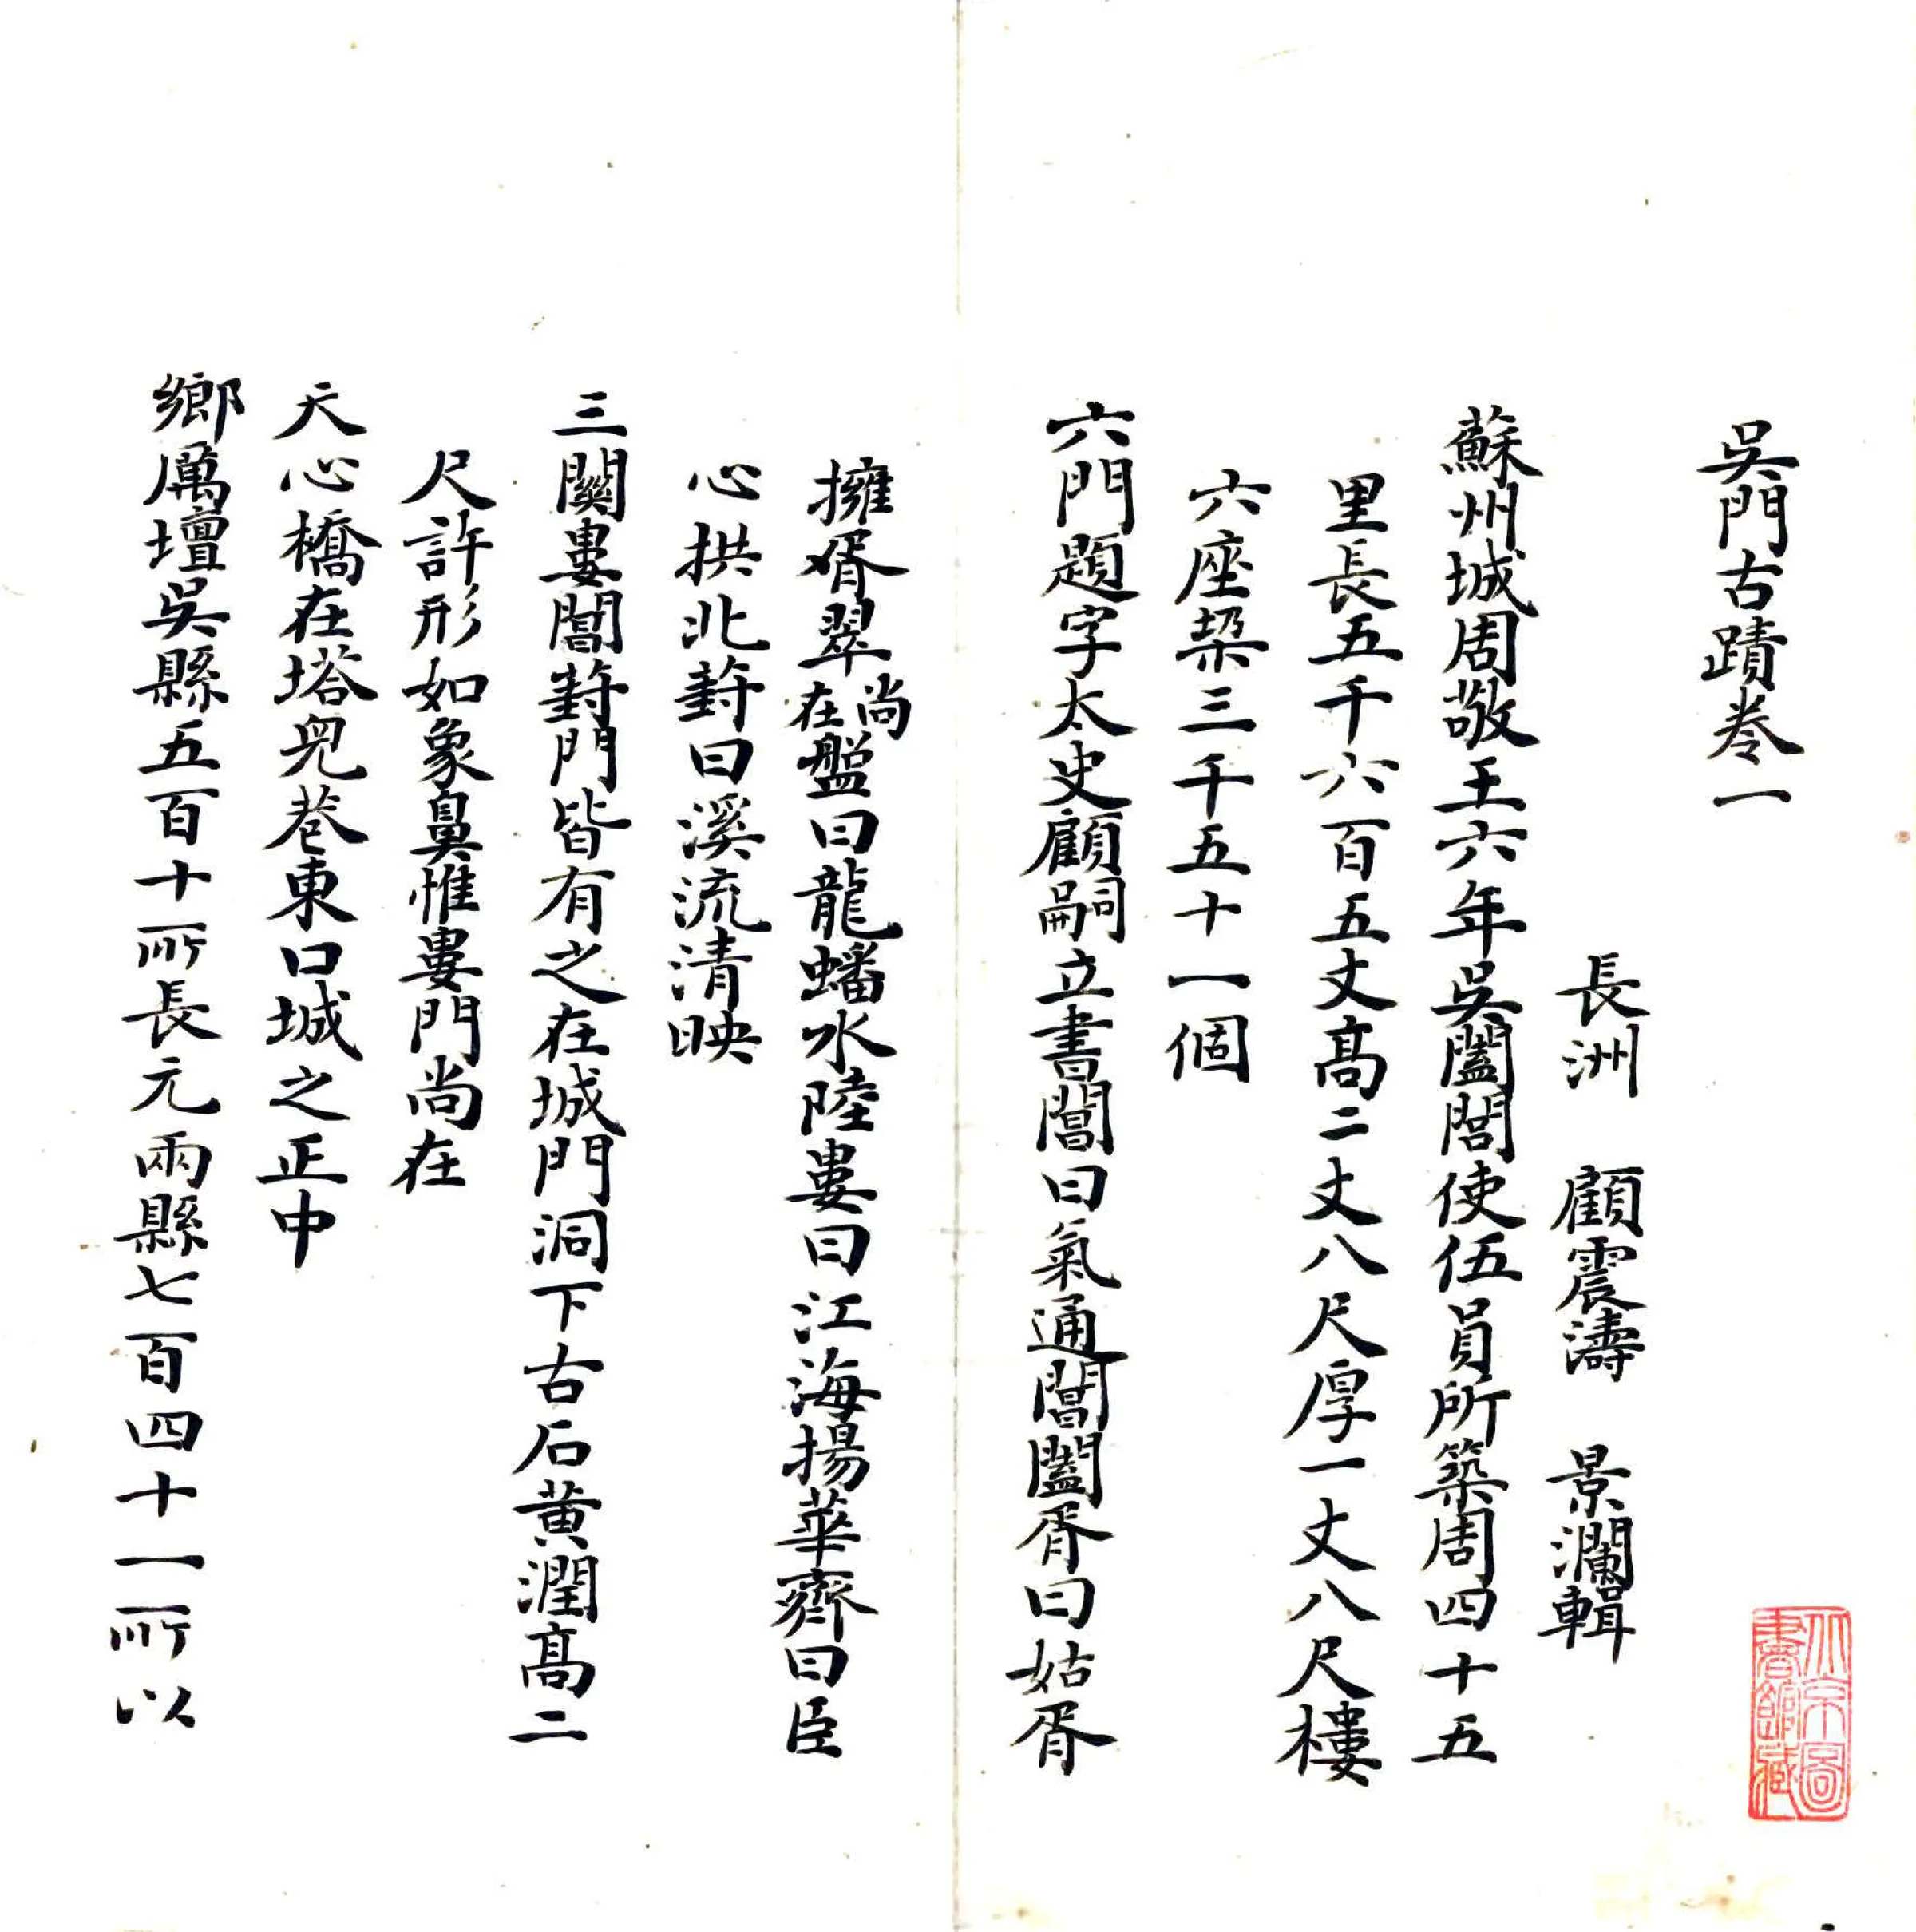 吳門古蹟卷一
長洲 顧震濤 景瀾輯
蘇州城周敬王六年吳闔閭使伍員所築周四十五
里長五千六百五丈高二丈八尺厚一丈八尺樓
六座梁三千五十一個
六門題字太史顧嗣立書閶曰氣通閶闔胥曰姑胥
擁翠尚在盤曰龍蟠水陸婁曰江海揚華齊曰臣
心拱北葑曰溪流清映
三關婁閶葑門皆有之在城門洞下古石黄潤高二
尺許形如象鼻惟婁門尚在
天心橋在塔兒巷東口城之正中
鄉厲壇吳縣五百十所長元兩縣七百四十一所以
北京圖書館藏